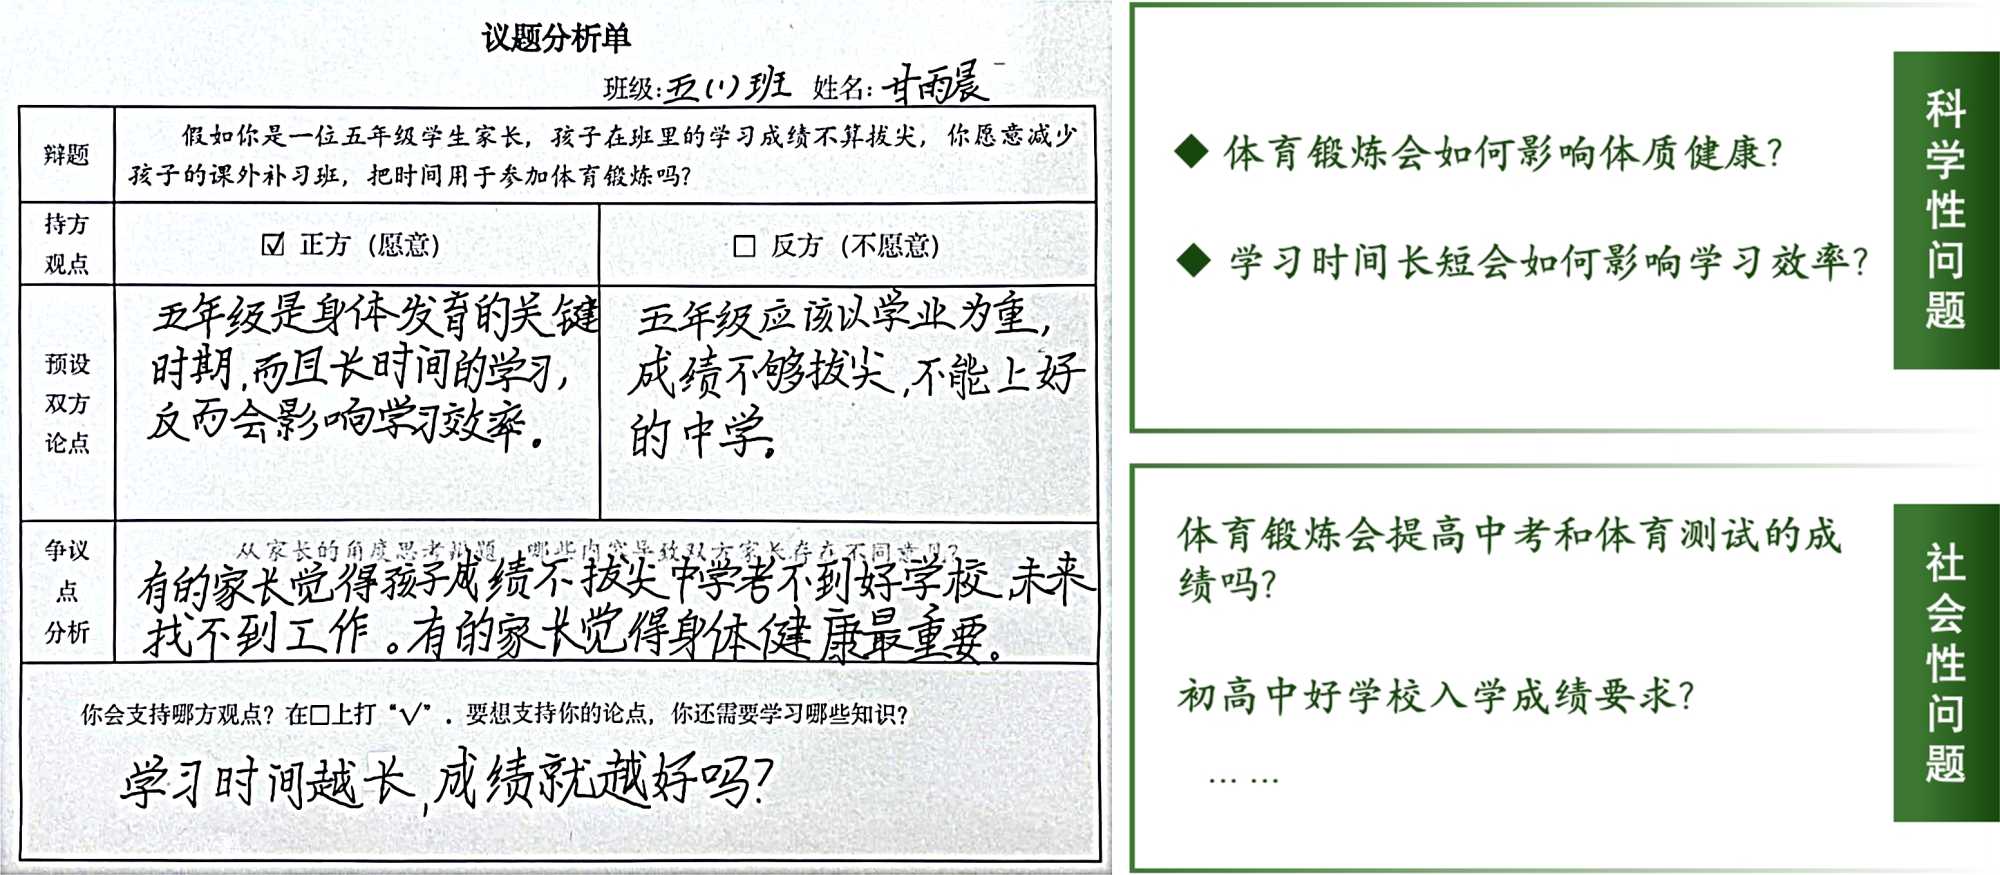 议题分析单
班级:五(1)班 姓名:甘雨晨
辩题
假如你是一位五年级学生家长，孩子在班里的学习成绩不算拔尖，你愿意减少
孩子的课外补习班，把时间用于参加体育锻炼吗？
持方
观点
☑ 正方（愿意）
□ 反方（不愿意）
预设
双方
论点
五年级是身体发育的关键
时期,而且长时间的学习,
反而会影响学习效率.
五年级应该以学业为重,
成绩不够拔尖,不能上好
的中学。
争议
点
分析
从家长的角度思考辩题，哪些内容导致双方家长存在不同意见？
有的家长觉得孩子成绩不拔尖中学考不到好学校,未来
找不到工作。有的家长觉得身体健康最重要。
你会支持哪方观点？在□上打“√”．要想支持你的论点，你还需要学习哪些知识？
学习时间越长,成绩就越好吗?
◆ 体育锻炼会如何影响体质健康？
◆ 学习时间长短会如何影响学习效率？
科学性问题
体育锻炼会提高中考和体育测试的成
绩吗？
初高中好学校入学成绩要求？
… …
社会性问题